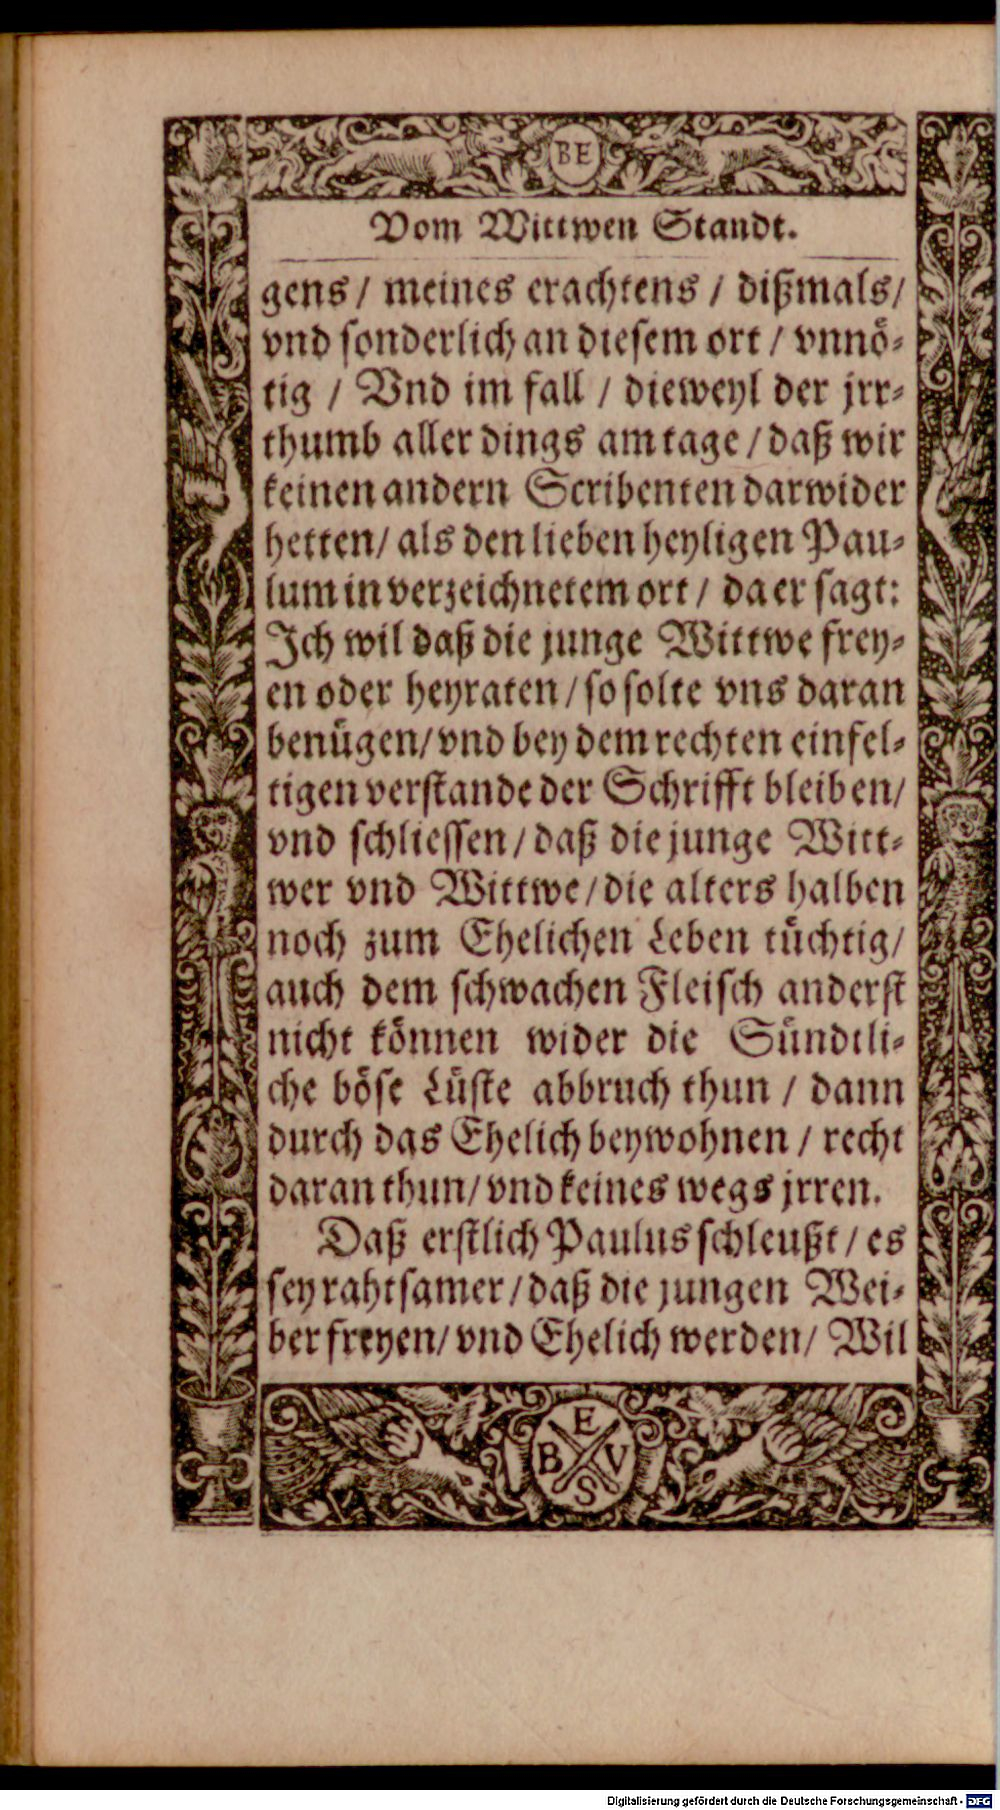 BE
Vom Wittwen Standt.
gens / meines erachtens / dißmals /
vnd sonderlich an diesem ort / vnnö-
tig / Vnd im fall / dieweyl der jrr-
thumb aller dings am tage / daß wir
keinen andern Scribenten darwider
hetten / als den lieben heyligen Pau-
lum in verzeichnetem ort / da er sagt:
Ich wil daß die junge Wittwe frey-
en oder heyraten / so solte vns daran
benügen / vnd bey dem rechten einfel-
tigen verstande der Schrifft bleiben /
vnd schliessen / daß die junge Witt-
wer vnd Wittwe / die alters halben
noch zum Ehelichen Leben tüchtig /
auch dem schwachen Fleisch anderst
nicht können wider die Sündtli-
che böse Lüste abbruch thun / dann
durch das Ehelich beywohnen / recht
daran thun / vnd keines wegs jrren.
Daß erstlich Paulus schleußt / es
sey rahtsamer / daß die jungen Wei-
ber freyen / vnd Ehelich werden / Wil
E
B V
S
Digitalisierung gefördert durch die Deutsche Forschungsgemeinschaft - DFG